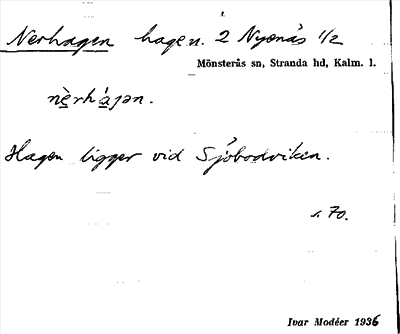 Nerhagen hagen. 2 Nynäs 1/2
Mönsterås sn, Stranda hd, Kalm. l.
nè̱rhá̱ɟən.
Hagen ligger vid Sjöbodviken.
s. 70.
Ivar Modéer 1936